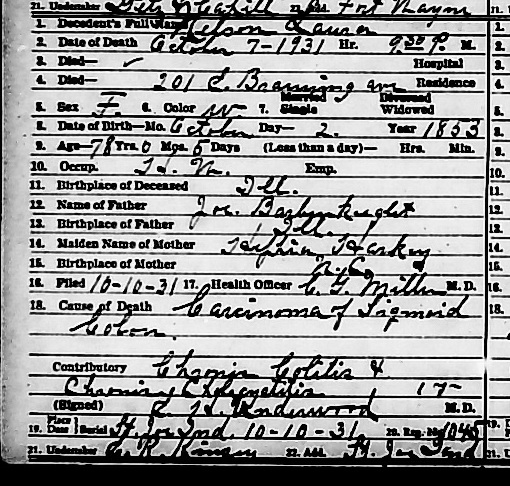 21. Undertaker Getz & Cahill 22. Add. Fort Wayne
1. Decedent's Full Name Nelson Laura
2. Date of Death October 7-1931 Hr. 9:30 P. M.
3. Died— ✓ Hospital
4. Died— 201 E. Branning ave Residence
5. Sex F. 6. Color W 7. Married Single Divorced Widowed
8. Date of Birth—Mo. October Day— 2. Year 1853
9. Age—78 Yrs. 0 Mos. 5 Days (Less than a day)— Hrs. Min.
10. Occup. H. W. Emp.
11. Birthplace of Deceased Ill.
12. Name of Father Joe.
13. Birthplace of Father Ill.
14. Maiden Name of Mother Harkey
15. Birthplace of Mother N.C.
16. Filed 10-10-31 17. Health Officer E. G. Miller M. D.
18. Cause of Death Carcinoma of Sigmoid
Colon.
Contributory Chronic Colitis &
Chronic
(Signed) E. H. Underwood M. D.
19. Place Date Burial St. Joe Ind. 10-10-31 20. Reg. No. 1045
21. Undertaker 22. Add. St. Joe Ind